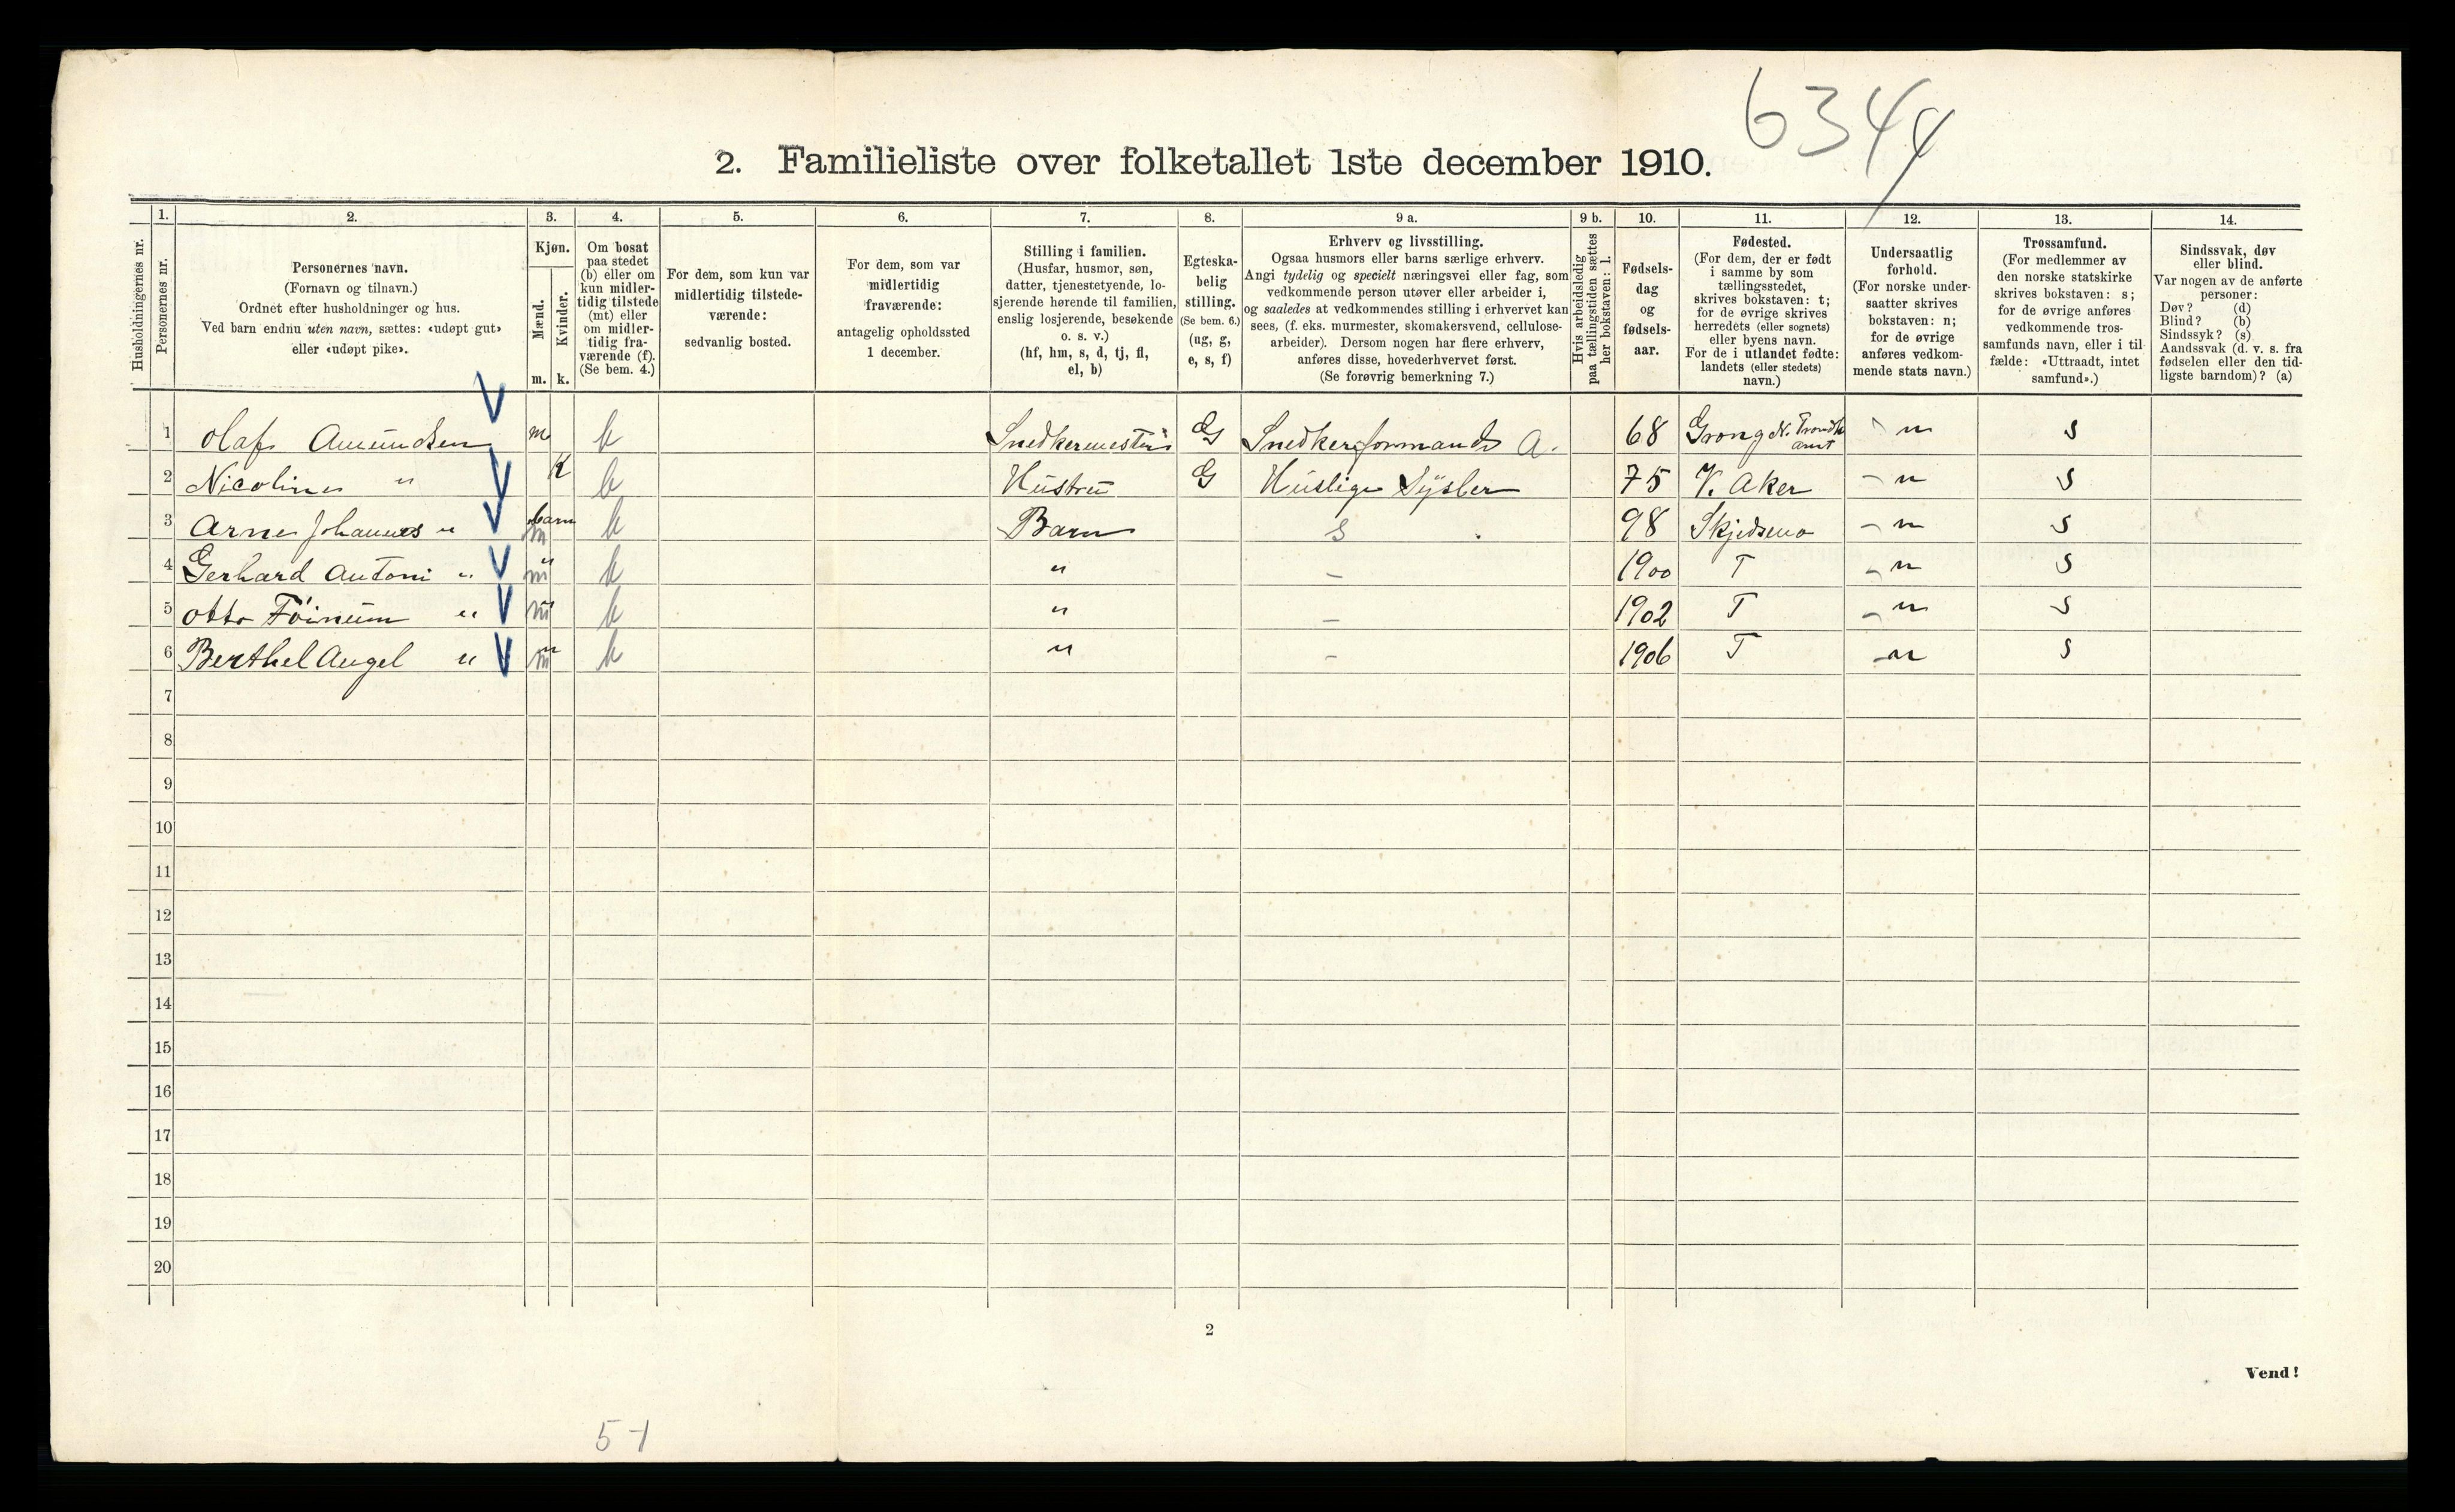 6344
2. Familieliste over folketallet 1ste december 1910.
Husholdningernes nr.
1. Personernes nr.
2. Personernes navn.
(Fornavn og tilnavn.)
Ordnet efter husholdninger og hus.
Ved barn endnu uten navn, sættes: «udøpt gut»
eller «udøpt pike».
3. Kjøn.
Mænd. Kvinder.
m. k.
4. Om bosat
paa stedet
(b) eller om
kun midler-
tidig tilstede
(mt) eller
om midler-
tidig fra-
værende (f).
(Se bem. 4.)
5. For dem, som kun var
midlertidig tilstede-
værende:
sedvanlig bosted.
6. For dem, som var
midlertidig
fraværende:
antagelig opholdssted
1 december.
7. Stilling i familien.
(Husfar, husmor, søn,
datter, tjenestetyende, lo-
sjerende hørende til familien,
enslig losjerende, besøkende
o. s. v.)
(hf, hm, s, d, tj, fl,
el, b)
8. Egteska-
belig
stilling.
(Se bem. 6.)
(ug, g,
e, s, f)
9 a. Erhverv og livsstilling.
Ogsaa husmors eller barns særlige erhverv.
Angi tydelig og specielt næringsvei eller fag, som
vedkommende person utøver eller arbeider i,
og saaledes at vedkommendes stilling i erhvervet kan
sees, (f. eks. murmester, skomakersvend, cellulose-
arbeider). Dersom nogen har flere erhverv,
anføres disse, hovederhvervet først.
(Se forøvrig bemerkning 7.)
9 b. Hvis arbeidsledig
paa tællingstiden sættes
her bokstaven: l.
10. Fødsels-
dag
og
fødsels-
aar.
11. Fødested.
(For dem, der er født
i samme by som
tællingsstedet,
skrives bokstaven: t;
for de øvrige skrives
herredets (eller sognets)
eller byens navn.
For de i utlandet fødte:
landets (eller stedets)
navn.)
12. Undersaatlig
forhold.
(For norske under-
saatter skrives
bokstaven: n;
for de øvrige
anføres vedkom-
mende stats navn.)
13. Trossamfund.
(For medlemmer av
den norske statskirke
skrives bokstaven: s;
for de øvrige anføres
vedkommende tros-
samfunds navn, eller i til-
fælde: «Uttraadt, intet
samfund».)
14. Sindssvak, døv
eller blind.
Var nogen av de anførte
personer:
Døv? (d)
Blind? (b)
Sindssyk? (s)
Aandssvak (d. v. s. fra
fødselen eller den tid-
ligste barndom)? (a)
1 Olaf Amundsen m b Snedkermester G Snedkerformand A. 68 Grong N. Trondh amt n s
2 Nicoline " K b Hustru G Huslige Sysler 75 V. Aker n s
3 Arne Johannes " barn m b Barn s 98 Skjedsmo n s
4 Gerhard Antoni " " m b " – 1900 T n s
5 Otto " " m b " – 1902 T n s
6 Berthel Angel " " m b " – 1906 T n s
7
8
9
10
11
12
13
14
15
16
17
18
19
20
2
Vend!
51